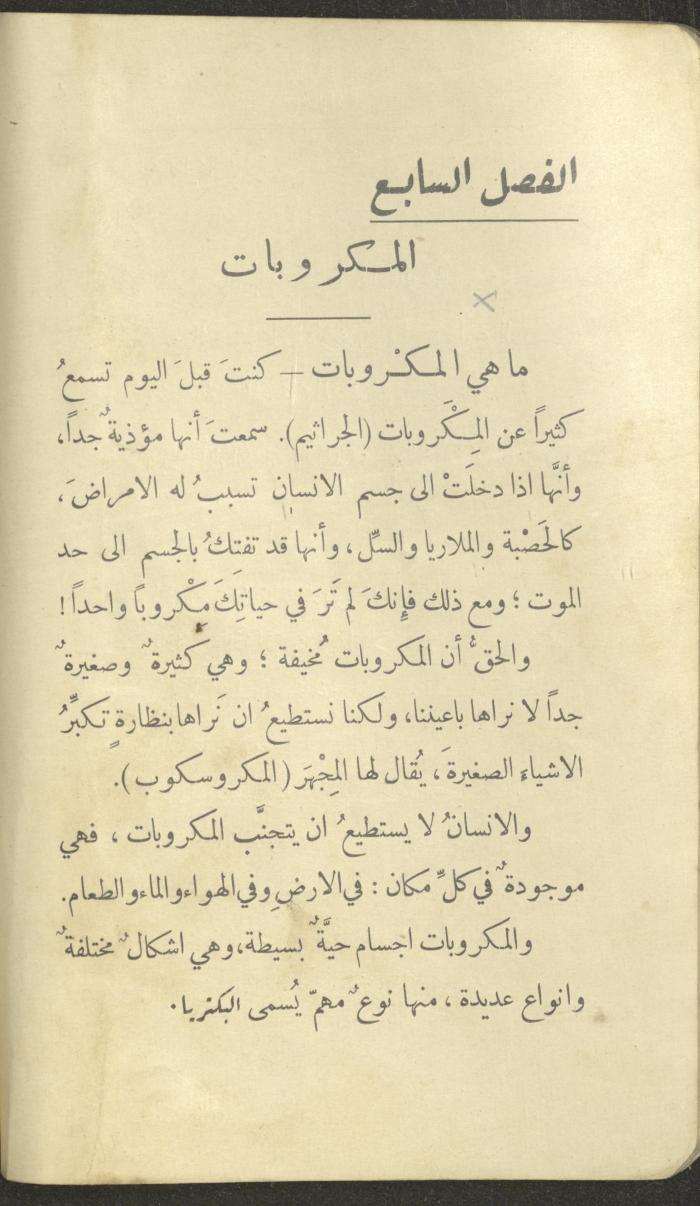 الفصل السابع
المكروبات
ما هي المكْروبات – كنتَ قبلَ اليوم تسمعُ
كثيراً عن المِكْرَوبات (الجراثيم). سمعتَ أنها مؤذيةٌ جداً،
وأنَّها اذا دخلَتْ الى جسم الانسان تسببُ له الامراضَ،
كالحَصْبة والملاريا والسلِّ، وأنها قد تفتِكُ بالجسم الى حد
الموت ؛ ومع ذلك فإِنكَ لم تَرَ في حياتِكَ مَكْروباً واحداً !
والحقُّ أن المكروبات مُخيفة ؛ وهي كثيرةٌ وصغيرةٌ
جداً لا نراها باعيننا، ولكنا نستطيعُ ان نَراها بنظارةٍ تكبِّرُ
الاشياء الصغيرةَ، يُقال لها المِجْهَرَ (المكروسكوب).
والانسانُ لا يستطيعُ ان يتجنَّب المكروبات ، فهي
موجودةٌ في كلِّ مكان : في الارضِ وفي الهواء والماء والطعام.
والمكروبات اجسام حيَّةٌ بسيطة، وهي اشكالٌ مختلفةٌ
وانواع عديدة ، منها نوعٌ مهمّ يُسمى البكتريا.